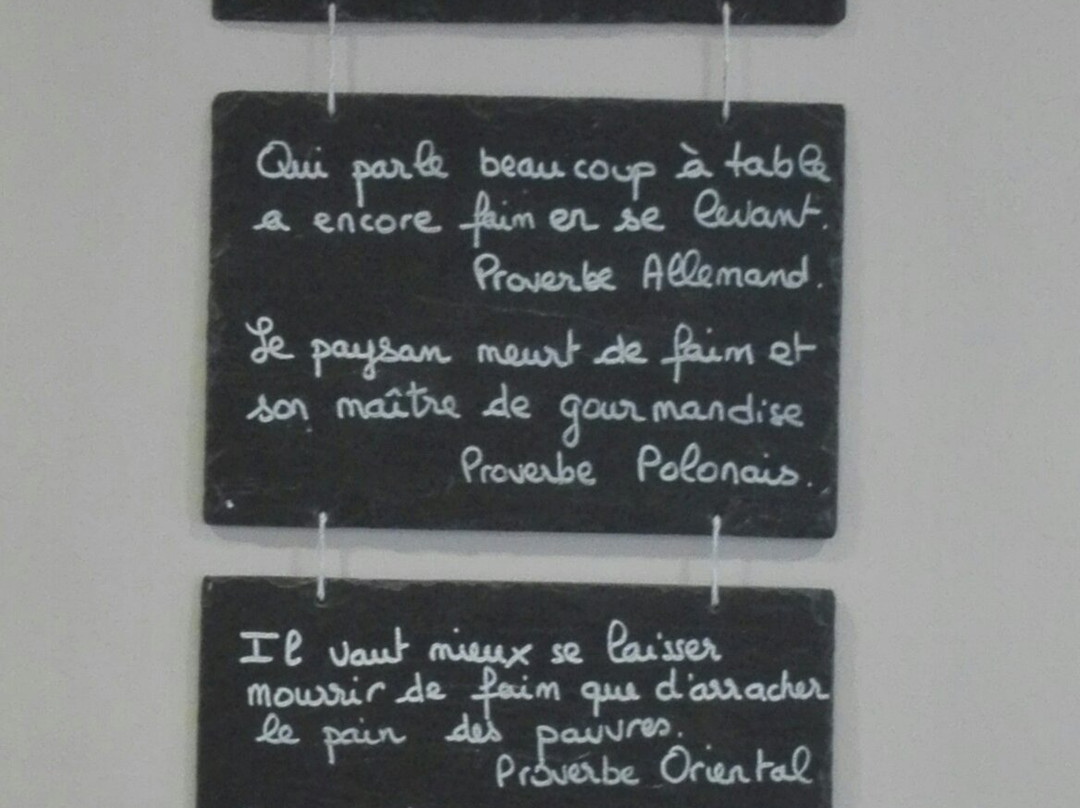 Qui parle beaucoup à table
a encore faim en se levant.
Proverbe Allemand.
Le paysan meurt de faim et
son maître de gourmandise
Proverbe Polonais.
Il vaut mieux se laisser
mourrir de faim que d'arracher
le pain des pauvres.
Proverbe Oriental